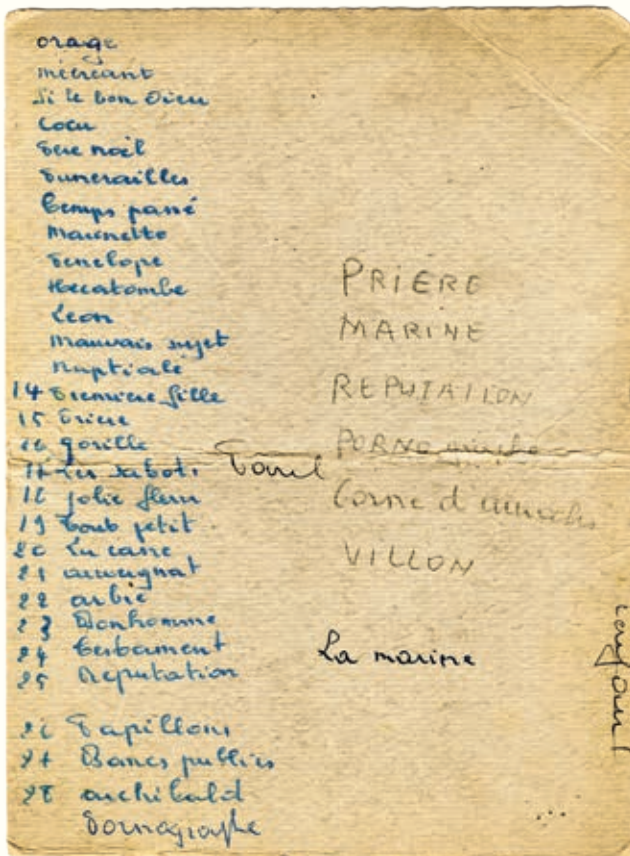 orage
mécréant
Si le bon Dieu
Cocu
Père noël
Funérailles
temps passé
Marinette
Pénélope
Hécatombe
Léon
Mauvais sujet
Nuptiale
14 Première fille
15 Prière
16 gorille
17 les sabots
18 jolie fleur
19 tout petit
20 La cane
21 auvergnat
22 arbre
23 Bonhomme
24 testament
25 Reputation
26 Papillons
27 Bancs publics
28 archibald
Pornographe
PRIÈRE
MARINE
REPUTATION
PORNO
Corne d'aurochs
VILLON
La marine